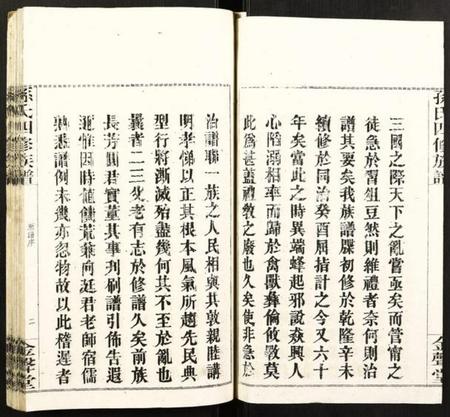 三國之際天下之亂嘗亟矣而管甯之
徒急於習俎豆然則維禮者奈何則治
譜其要矣我族譜牒初修於乾隆辛未
續修於同治癸酉屈指計之今又六十
年矣當此之時異端蜂起邪說猋興人
心陷溺相率而歸於禽獸彝倫攸斁莫
此爲甚蓋禮敎之廢也久矣使非急於
治譜聯一族之人民相與其敦親睦講
明孝悌以正其根本風氣所趨先民典
型行將澌滅殆盡幾何其不至於亂也
曩者二三父老有志於修譜久矣前族
長芳圃君實董其事刊刷譜引佈告遐
邇惟因時値饑荒兼
君老師宿儒
熟悉譜例未幾亦忽物故以此稽遲者
孫氏四修族譜
金聲堂
孫氏四修族譜
譜序
二
金聲堂